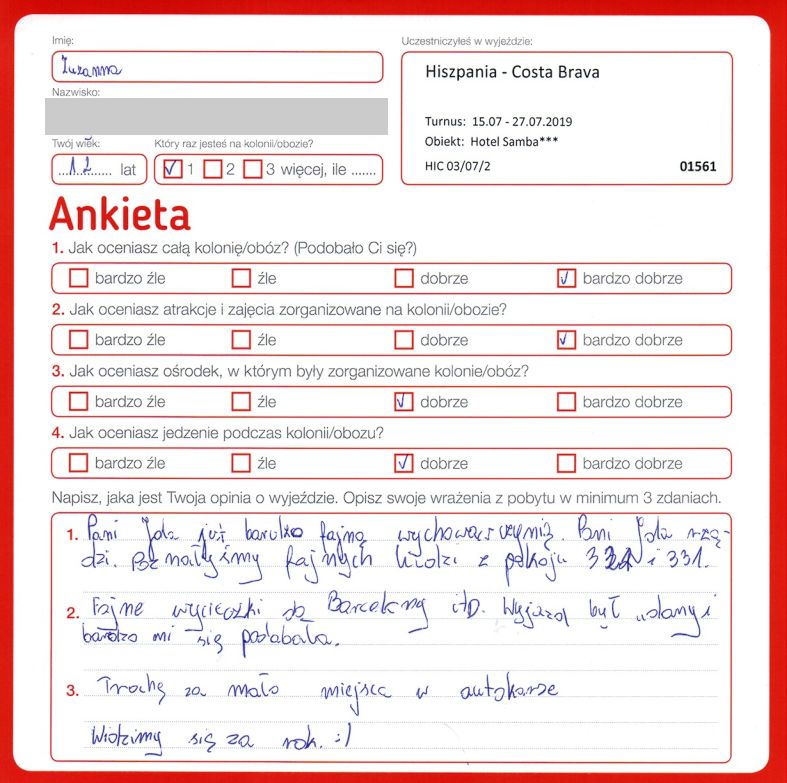 Imię:
Zuzanna
Nazwisko:
Twój wiek:
12 lat
Który raz jesteś na kolonii/obozie?
1 2 3 więcej, ile .......
Uczestniczyłeś w wyjeździe:
Hiszpania - Costa Brava
Turnus: 15.07 - 27.07.2019
Obiekt: Hotel Samba***
HIC 03/07/2 01561
Ankieta
1. Jak oceniasz całą kolonię/obóz? (Podobało Ci się?)
bardzo źle źle dobrze bardzo dobrze
2. Jak oceniasz atrakcje i zajęcia zorganizowane na kolonii/obozie?
bardzo źle źle dobrze bardzo dobrze
3. Jak oceniasz ośrodek, w którym były zorganizowane kolonie/obóz?
bardzo źle źle dobrze bardzo dobrze
4. Jak oceniasz jedzenie podczas kolonii/obozu?
bardzo źle źle dobrze bardzo dobrze
Napisz, jaka jest Twoja opinia o wyjeździe. Opisz swoje wrażenia z pobytu w minimum 3 zdaniach.
1. Pani Ida jest bardzo fajną wychowawczynią. Pani Ida rzą-
dzi. Poznałyśmy fajnych ludzi z pokoju i 331.
2. Fajne wycieczki do Barcelony itp. Wyjazd był udany i
bardzo mi się podobało.
3. Trochę za mało miejsca w autokarze
Widzimy się za rok. :)